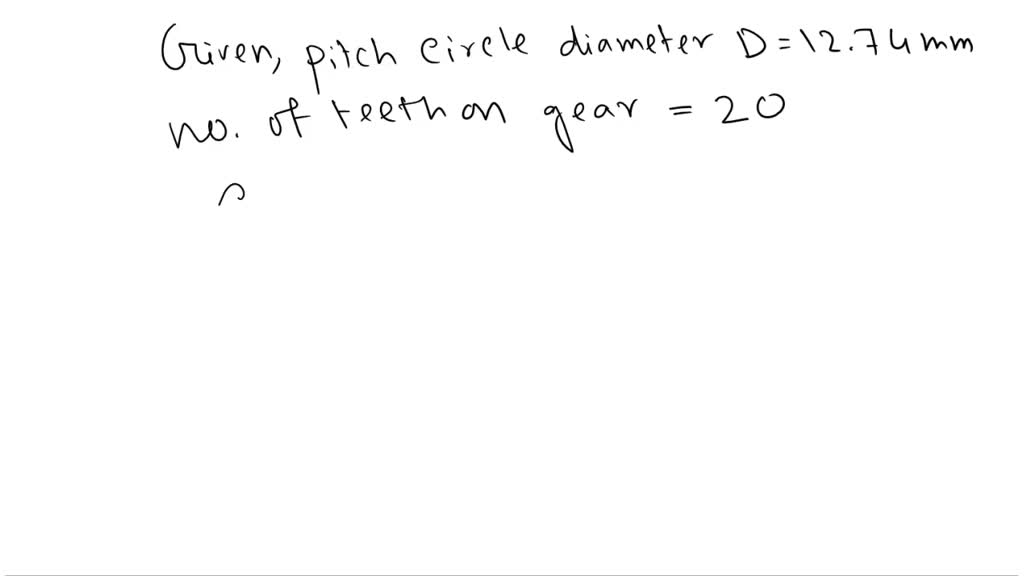 Given, pitch circle diameter D = 12.74 mm
no. of teeth on gear = 20